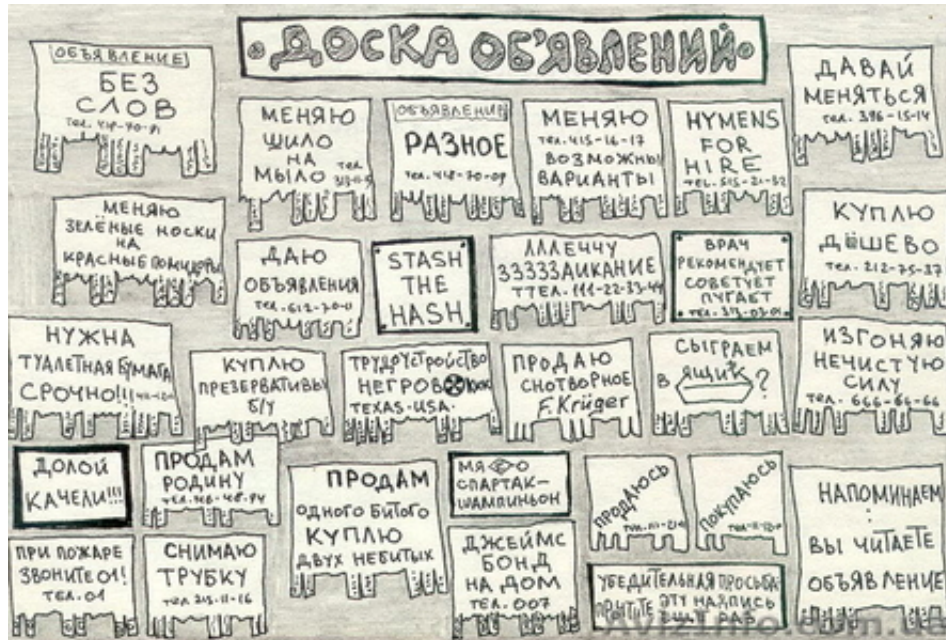 ДОСКА ОБЪЯВЛЕНИЙ
ОБЪЯВЛЕНИЕ
БЕЗ
СЛОВ
МЕНЯЮ
ШИЛО
НА
МЫЛО
тел.
ОБЪЯВЛЕНИЕ
РАЗНОЕ
тел. 418-70-09
МЕНЯЮ
тел. 415-16-17
ВОЗМОЖНЫ
ВАРИАНТЫ
HYMENS
FOR
HIRE
TEL. 515-21-32
ДАВАЙ
МЕНЯТЬСЯ
тел. 396-15-14
МЕНЯЮ
ЗЕЛЁНЫЕ НОСКИ
НА
КРАСНЫЕ ПОМИДОРЫ
ДАЮ
ОБЪЯВЛЕНИЯ
STASH
THE
HASH
ЛЛЛЕЧЧУ
ЗЗЗЗЗАИКАНИЕ
ТТЕЛ. 111-22-33-44
ВРАЧ
РЕКОМЕНДУЕТ
СОВЕТУЕТ
ПУГАЕТ
КУПЛЮ
ДЁШЕВО
тел. 212-75-37
НУЖНА
ТУАЛЕТНАЯ БУМАГА
СРОЧНО!!!
КУПЛЮ
ПРЕЗЕРВАТИВЫ
Б/У
ТРУДОУСТРОЙСТВО
НЕГРОВ
TEXAS-USA.
ПРОДАЮ
СНОТВОРНОЕ
F. Krüger
СЫГРАЕМ
В ЯЩИК?
ИЗГОНЯЮ
НЕЧИСТУЮ
СИЛУ
тел. 666-66-66
ДОЛОЙ
КАЧЕЛИ!!!
ПРОДАМ
РОДИНУ
ПРОДАМ
ОДНОГО БИТОГО
КУПЛЮ
ДВУХ НЕБИТЫХ
СПАРТАК-
ШАМПИНЬОН
ПРОДАЮСЬ
ПОКУПАЮСЬ
НАПОМИНАЕМ
:
ВЫ ЧИТАЕТЕ
ОБЪЯВЛЕНИЕ
ПРИ ПОЖАРЕ
ЗВОНИТЕ 01!
ТЕЛ. 01
СНИМАЮ
ТРУБКУ
тел 245-11-16
ДЖЕЙМС
БОНД
НА ДОМ
ТЕЛ. 007
УБЕДИТЕЛЬНАЯ ПРОСЬБА:
ПРОЧТИТЕ ЭТУ НАДПИСЬ
ЕЩЁ РАЗ